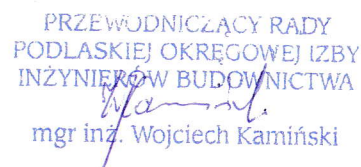 PRZEWODNICZĄCY RADY
PODLASKIEJ OKRĘGOWEJ IZBY
INŻYNIERÓW BUDOWNICTWA
mgr inż. Wojciech Kamiński